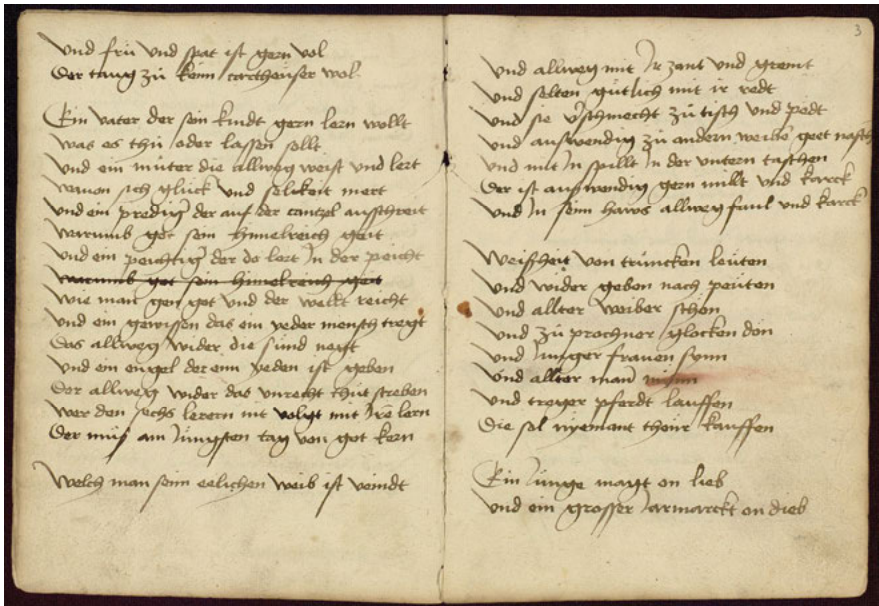 vnd frü vnd spat ist gern vol
Der taug zu keim cartheuser wol
Ein vater der sein kindt gern lern wollt
was es thu oder lassen sollt
vnd ein muter die allweg weist vnd lert
wauon sich glück vnd selikeit mert
vnd ein prediger der auf der cantzel ausschreit
warumb got sein himelreich geit
vnd ein peichtiger der do lert in der peicht
warumb got sein himelreich geit
wie man gen got vnd der wellt reicht
vnd ein gewissen das ein yeder mensch tregt
Das allweg wider die sünd
vnd ein engel der eim yeden ist geben
Der allweg wider das vnrecht thut streben
wer den sechs lerern nit volgt mit ire lern
Der mus am iungsten tag von got kern
Welch man seim eelichen weib ist veindt
3
vnd allweg mit ir zant vnd greint
vnd selten gutlich mit ir redt
vnd sie verschmecht zu tisch vnd pedt
vnd auswendig zu andern weibern geet
vnd mit in spillt in der vntern taschen
Der ist auswendig gern millt vnd karck
vnd in seim haws allweg faul vnd karck
Weisheit von truncken leuten
vnd wider geben nach peuten
vnd allter weiber schön
vnd zuprochner glocken dön
vnd iunger frauen synn
vnd allter man
vnd treger pferdt lauffen
Die sol nyemant theur kauffen
Ein iunge magt on lieb
vnd ein grosser iarmarckt on dieb